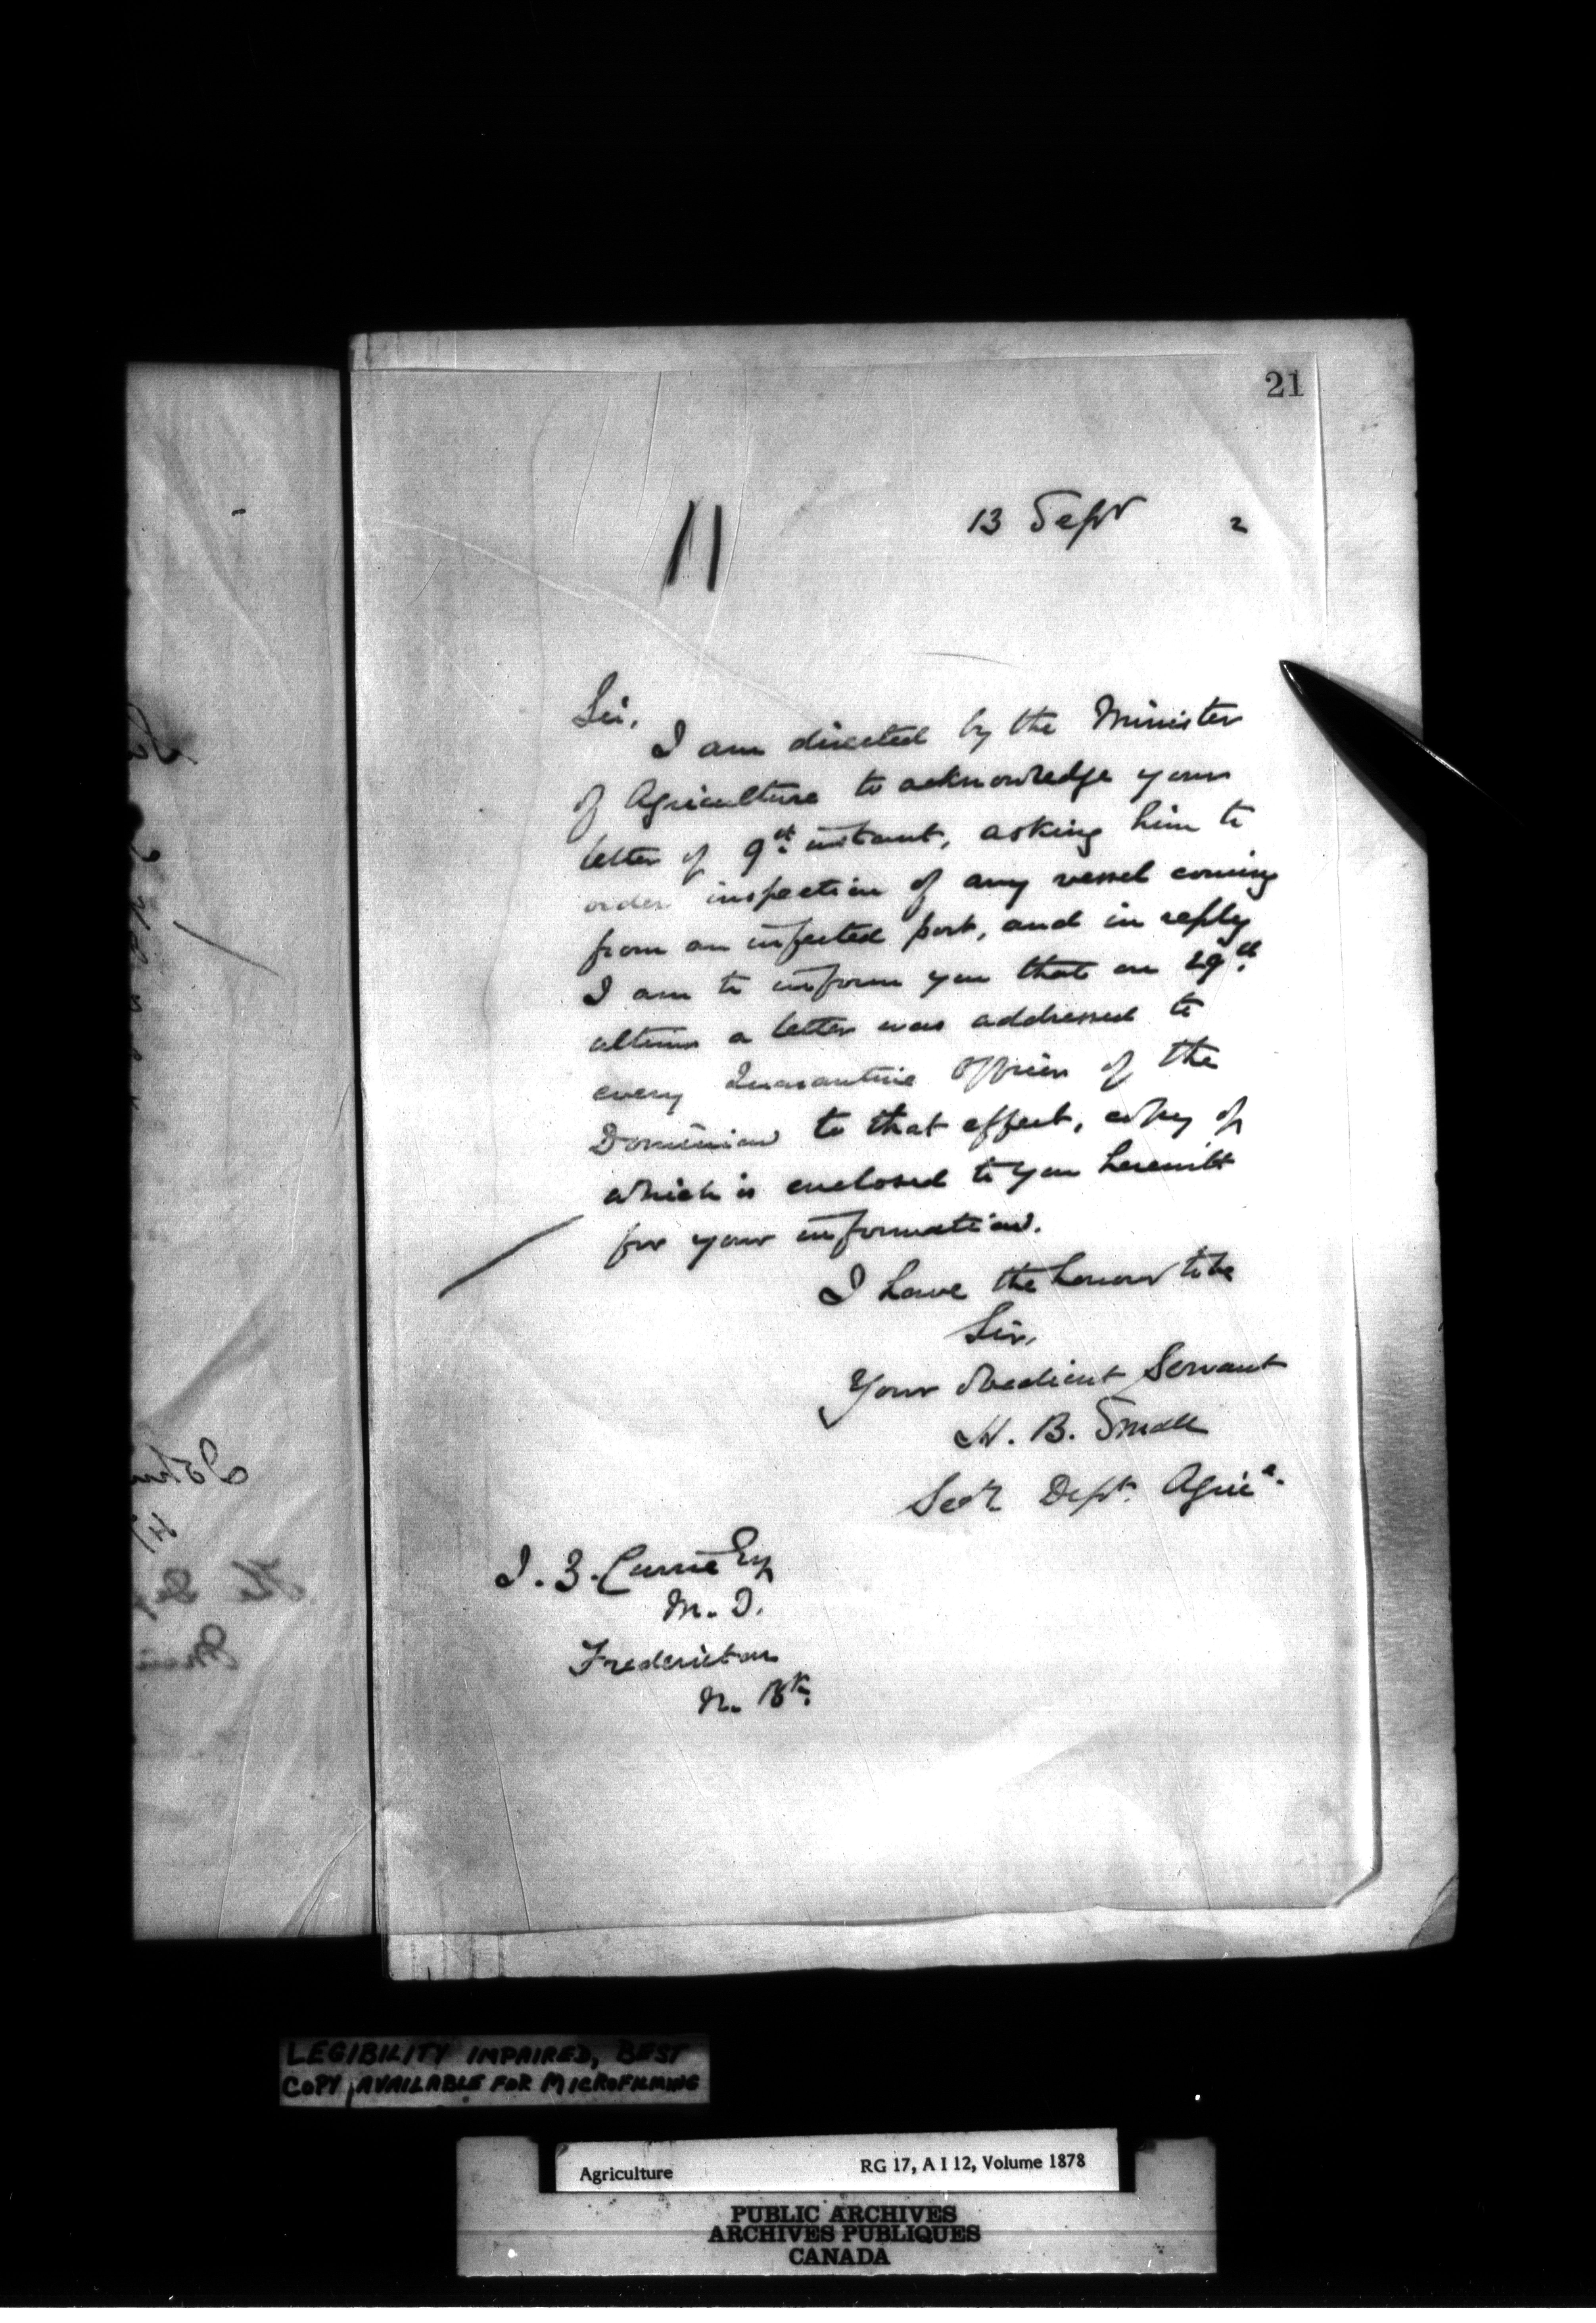 21
11
13 Sepr 2
Sir,
I am directed by the Minister
of Agriculture to acknowledge your
letter of 9th instant, asking him to
order inspection of any vessel coming
from an infected port, and in reply
I am to inform you that on 29th
ultimo a letter was addressed to
every Quarantine Officer of the
Dominion to that effect, copy of
which is enclosed to you herewith
for your information.
I have the honour to be
Sir,
Your obedient Servant
H. B. Small
Secy Dept. Agric.
J. Z. Currie Esq
M. D.
Fredericton
N. Bk.
LEGIBILITY IMPAIRED, BEST
COPY AVAILABLE FOR MICROFILMING
Agriculture RG 17, A I 12, Volume 1878
PUBLIC ARCHIVES
ARCHIVES PUBLIQUES
CANADA